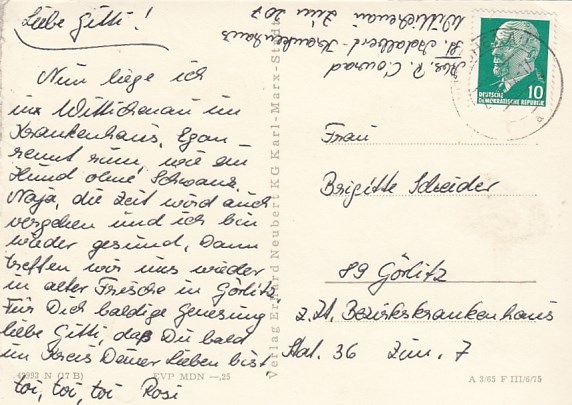 Liebe Gitti!
Nun liege ich
in Wittichenau im
Krankenhaus, Egon
rennt rum, wie ein
Hund ohne Schwanz.
Naja, die Zeit wird auch
vergehen und ich bin
wieder gesund. Dann
treffen wir uns wieder
in alter Frische in Görlitz.
Für Dich baldige Genesung
liebe Gitti, daß Du bald
im Kreis Deiner Lieben bist
toi, toi, toi Rosi
47993 N (17 B) EVP MDN —,25
Verlag Erhard Neubert KG Karl-Marx-Stadt
Abs. R. Conrad
St. Adalbert-Krankenhaus
Wittichenau Zim 207
10
DEUTSCHE
DEMOKRATISCHE REPUBLIK
Frau
Brigitte
89 Görlitz
z.Zt. Bezirkskrankenhaus
Stat. 36 Zim. 7
A 3/65 F III/6/75